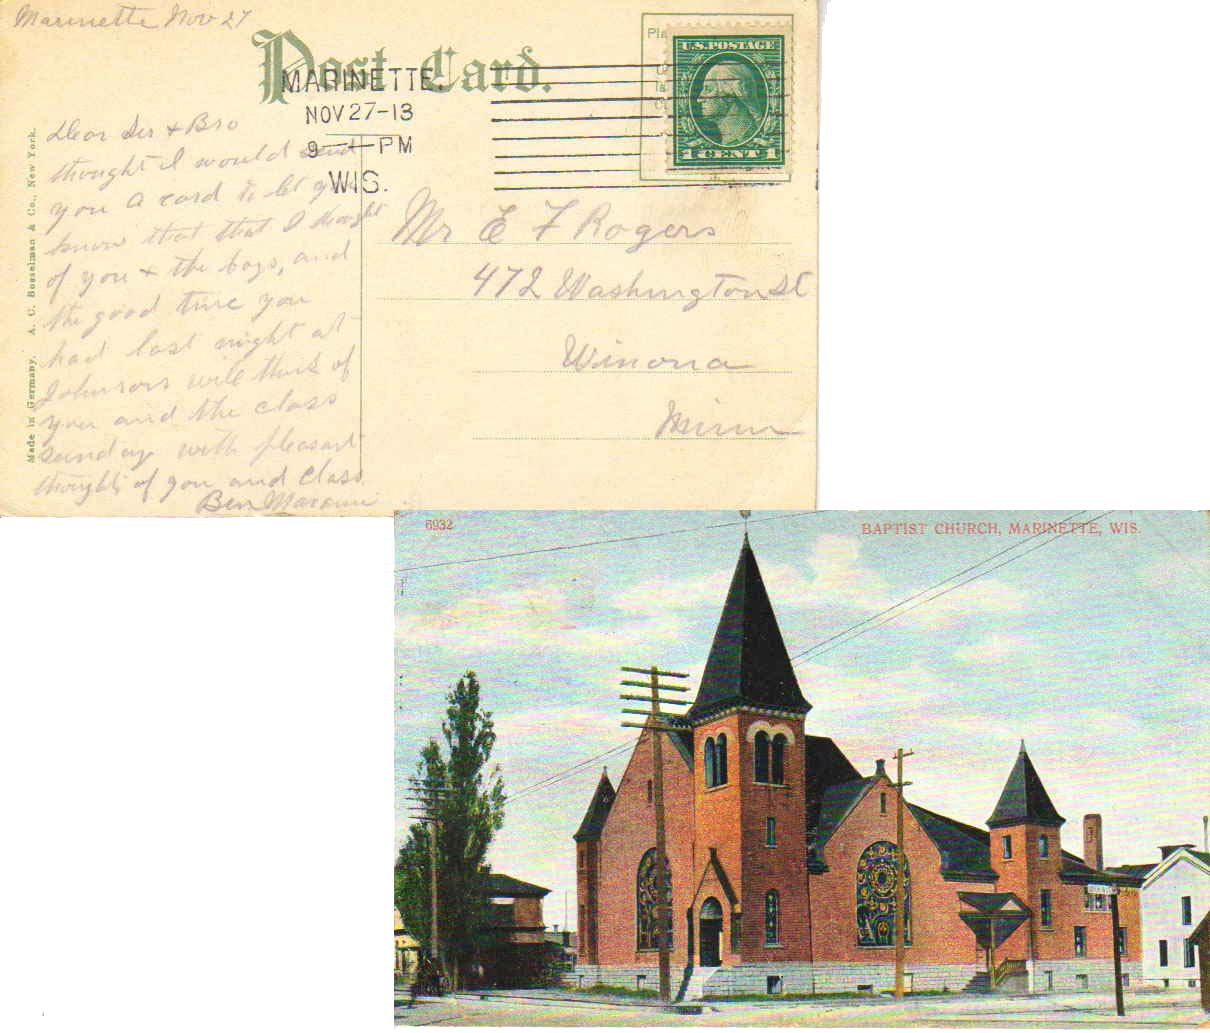 Marinette Nov 27
Post Card.
MARINETTE.
NOV 27-13
9 PM
WIS.
Pla
U.S. POSTAGE
1 CENT 1
Made in Germany. A. C. Bosselman & Co., New York.
Dear Sis + Bro
thought I would send
you a card to let you
know that that I thought
of you + the boys, and
the good time you
had last night at
Johnsons will think of
you and the class
sunday with pleasant
thoughts of you and class
Ben
Mr E F Rogers
472 Washington St
Winona
Minn
6932
BAPTIST CHURCH, MARINETTE, WIS.